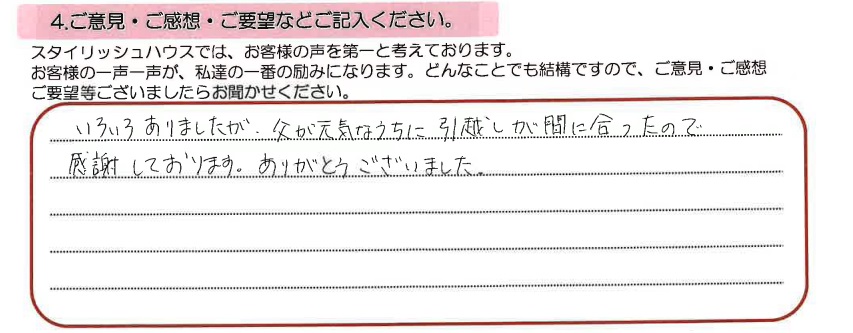 4.ご意見・ご感想・ご要望などご記入ください。
スタイリッシュハウスでは、お客様の声を第一と考えております。
お客様の一声一声が、私達の一番の励みになります。どんなことでも結構ですので、ご意見・ご感想
ご要望等ございましたらお聞かせください。
いろいろありましたが、父が元気なうちに引越しが間に合ったので
感謝しております。ありがとうございました。